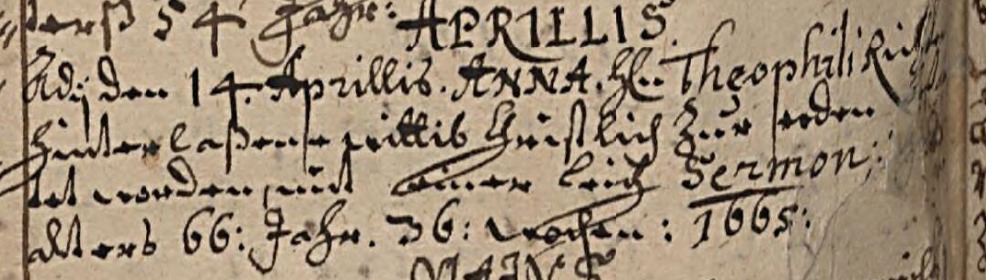 ters 54 Jahr:
APRILLIS
Adij den 14. Aprillis. ANNA. Hln: Theophili
hinterlaßene wittib Christlich zur erden
tet worden, mit einer leich Sermon;
alters 66: Jahr. 36: wochen: 1665: